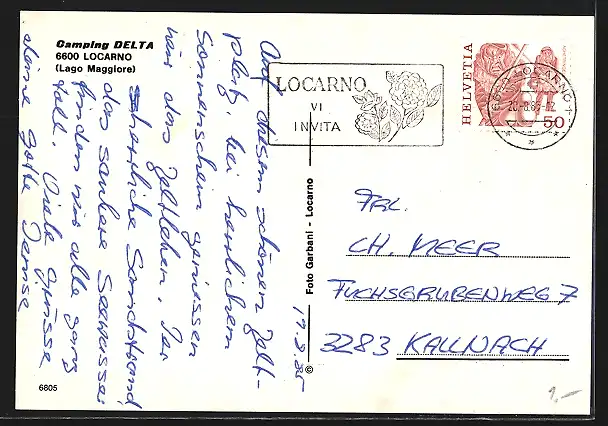 Camping DELTA
6600 LOCARNO
(Lago Maggiore)
Auf diesem schönen Zelt-
platz, bei herrlichem
Sonnenschein geniessen
wir das Zeltleben. Der
herrliche Sandstrand
das saubere Seewasser
finden wir alle ganz
toll. Viele Grüsse
deine Gotte Denise
17.8.85
Foto Garbani - Locarno
©
6805
LOCARNO
VI
INVITA
HELVETIA
50
6600 LOCARNO 1
FRL.
CH. MEER
FUCHSGRUBENWEG 7
3283 KALLNACH
1,-